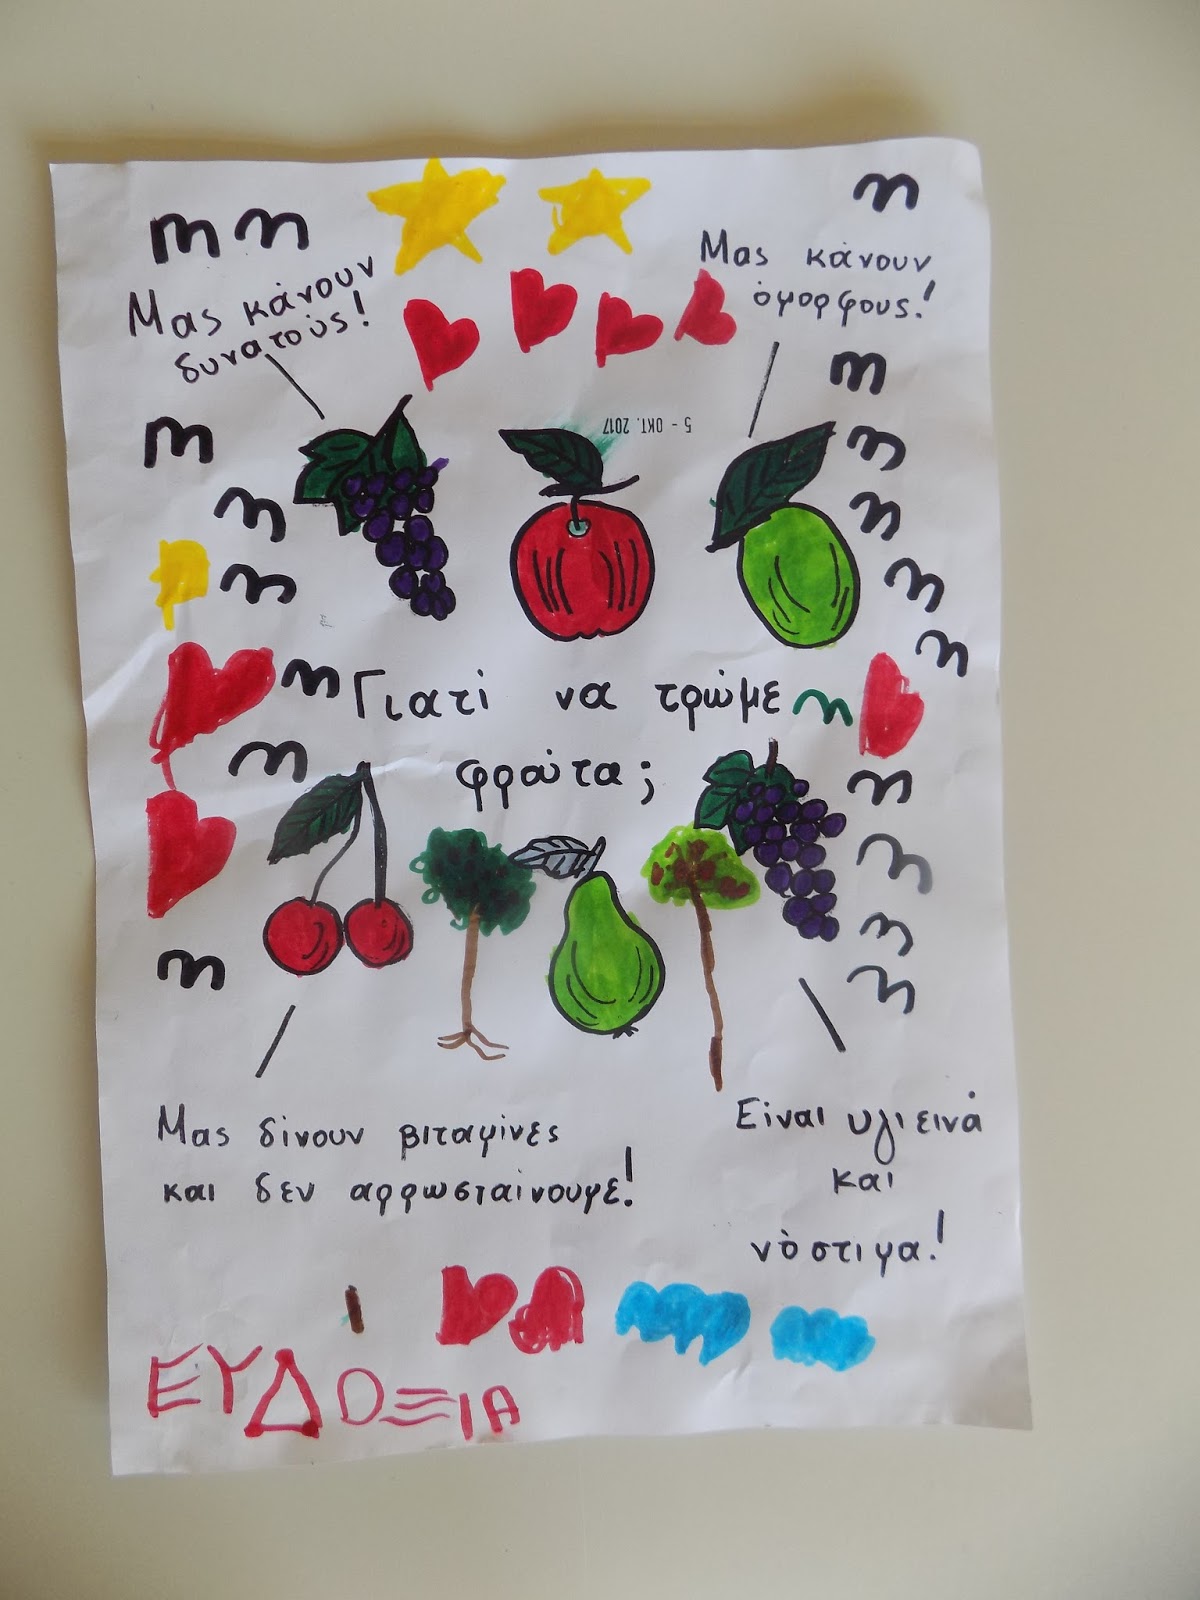 Μας κάνουν
δυνατούς!
Μας κάνουν
όμορφους!
5 - ΟΚΤ. 2017
Γιατί να τρώμε
φρούτα;
Μας δίνουν βιταμίνες
και δεν αρρωσταίνουμε!
Είναι υγιεινά
και
νόστιμα!
ΕΥΔΟΞΙΑ